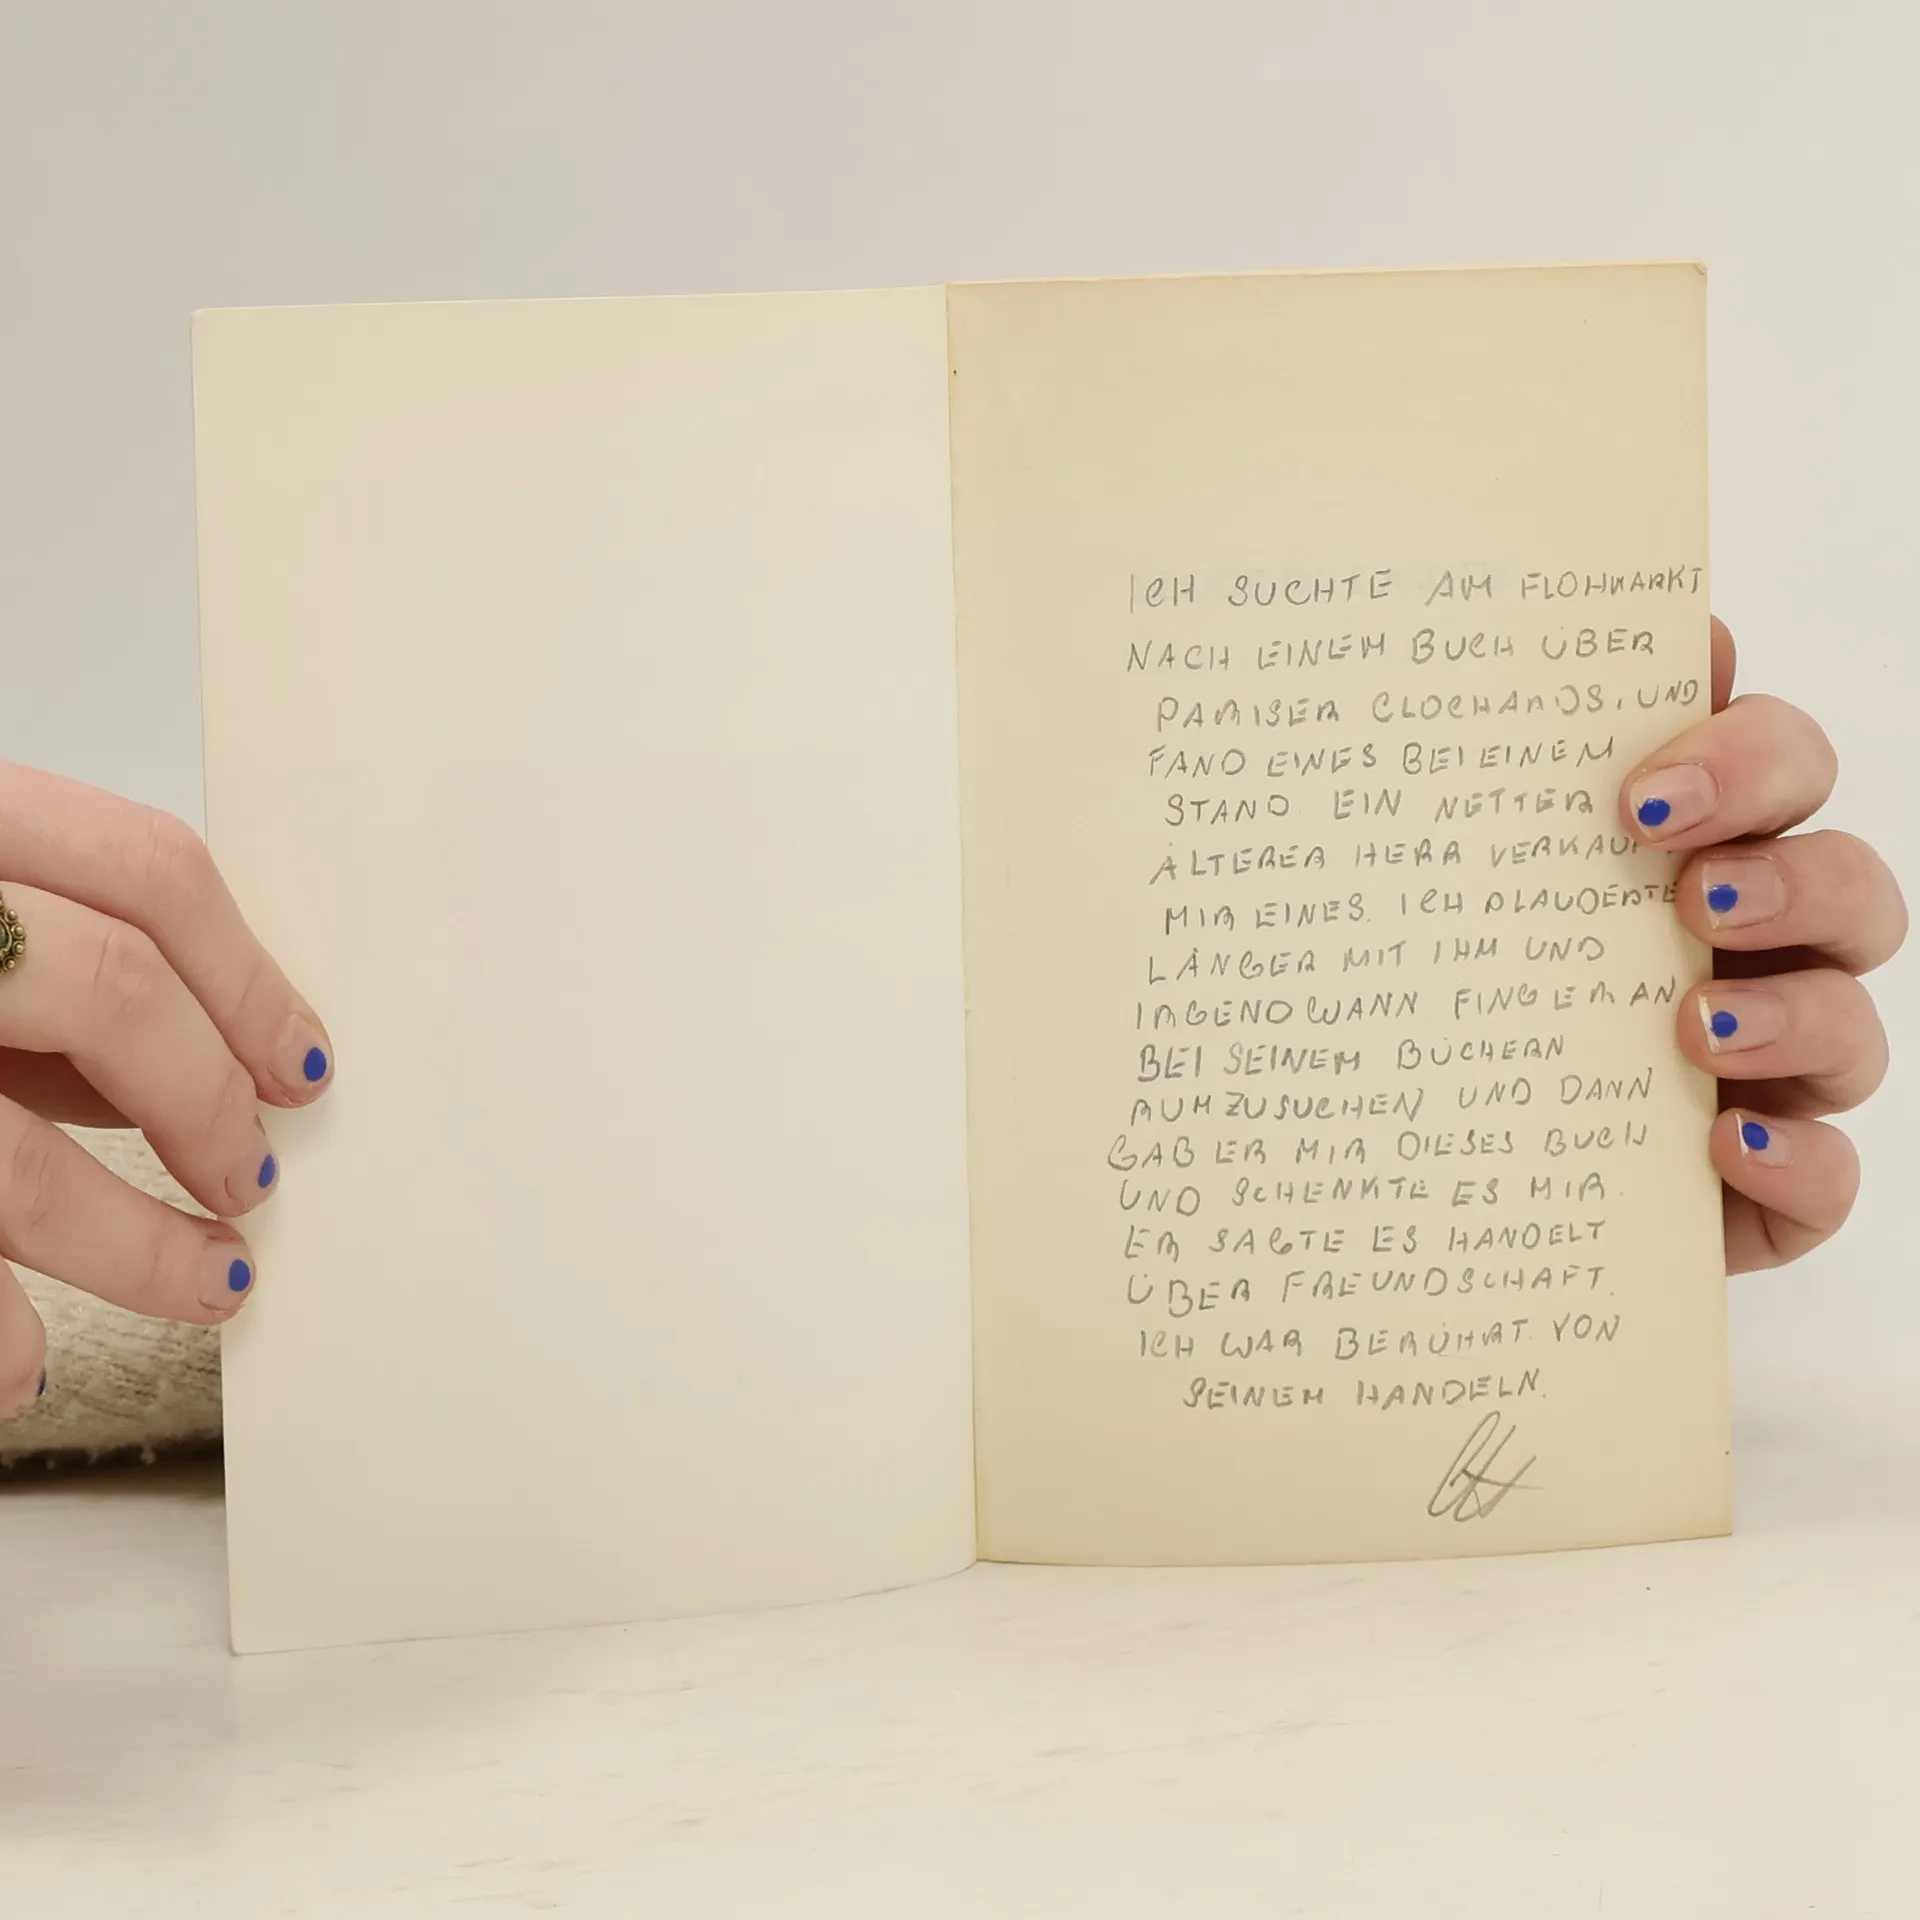 ICH SUCHTE AM FLOHMARKT
NACH EINEM BUCH ÜBER
PARISER CLOCHARDS, UND
FAND EINES BEI EINEM
STAND. EIN NETTER
ÄLTERER HERR VERKAUF
MIR EINES. ICH PLAUDERTE
LÄNGER MIT IHM UND
IRGENDWANN FING ER AN
BEI SEINEM BÜCHERN
RUMZUSUCHEN UND DANN
GAB ER MIR DIESES BUCH
UND SCHENKTE ES MIR.
ER SAGTE ES HANDELT
ÜBER FREUNDSCHAFT.
ICH WAR BERÜHRT VON
SEINEM HANDELN.